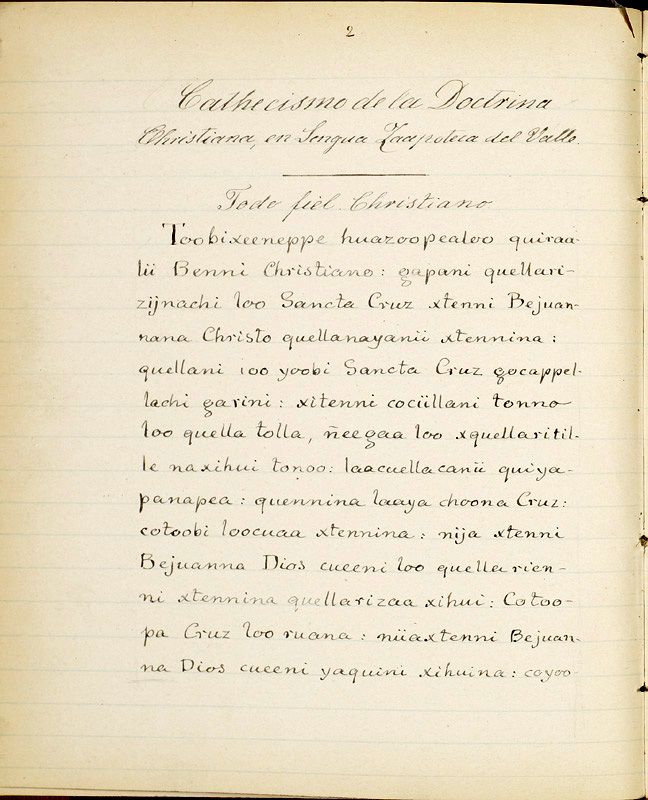 2
Cathecismo de la Doctrina
Christiana, en Lengua Zaapoteca del Valle.
Todo fiel Christiano
Toobixeeneppe huazoopealoo quiraa-
lii Benni Christiano: gapani quellari-
zijnachi loo Sancta Cruz xtenni Bejuan-
nana Christo quellanayanii xtennina:
quellani ioo yoobi Sancta Cruz gocappel-
lachi garini: xitenni cociillani tonno
loo quella tolla, ñeegaa loo xquellaritil-
le naxihui tonoo: laacuellacanii quiya-
panapea: quennina laaya choona Cruz:
cotoobi loocuaa xtennina: nija xtenni
Bejuanna Dios cueeni loo quella rien-
ni xtennina quellarizaa xihui: Cotoo-
pa Cruz loo ruana: niiaxtenni Bejuan-
na Dios cueeni yaquini xihuina: coyoo-